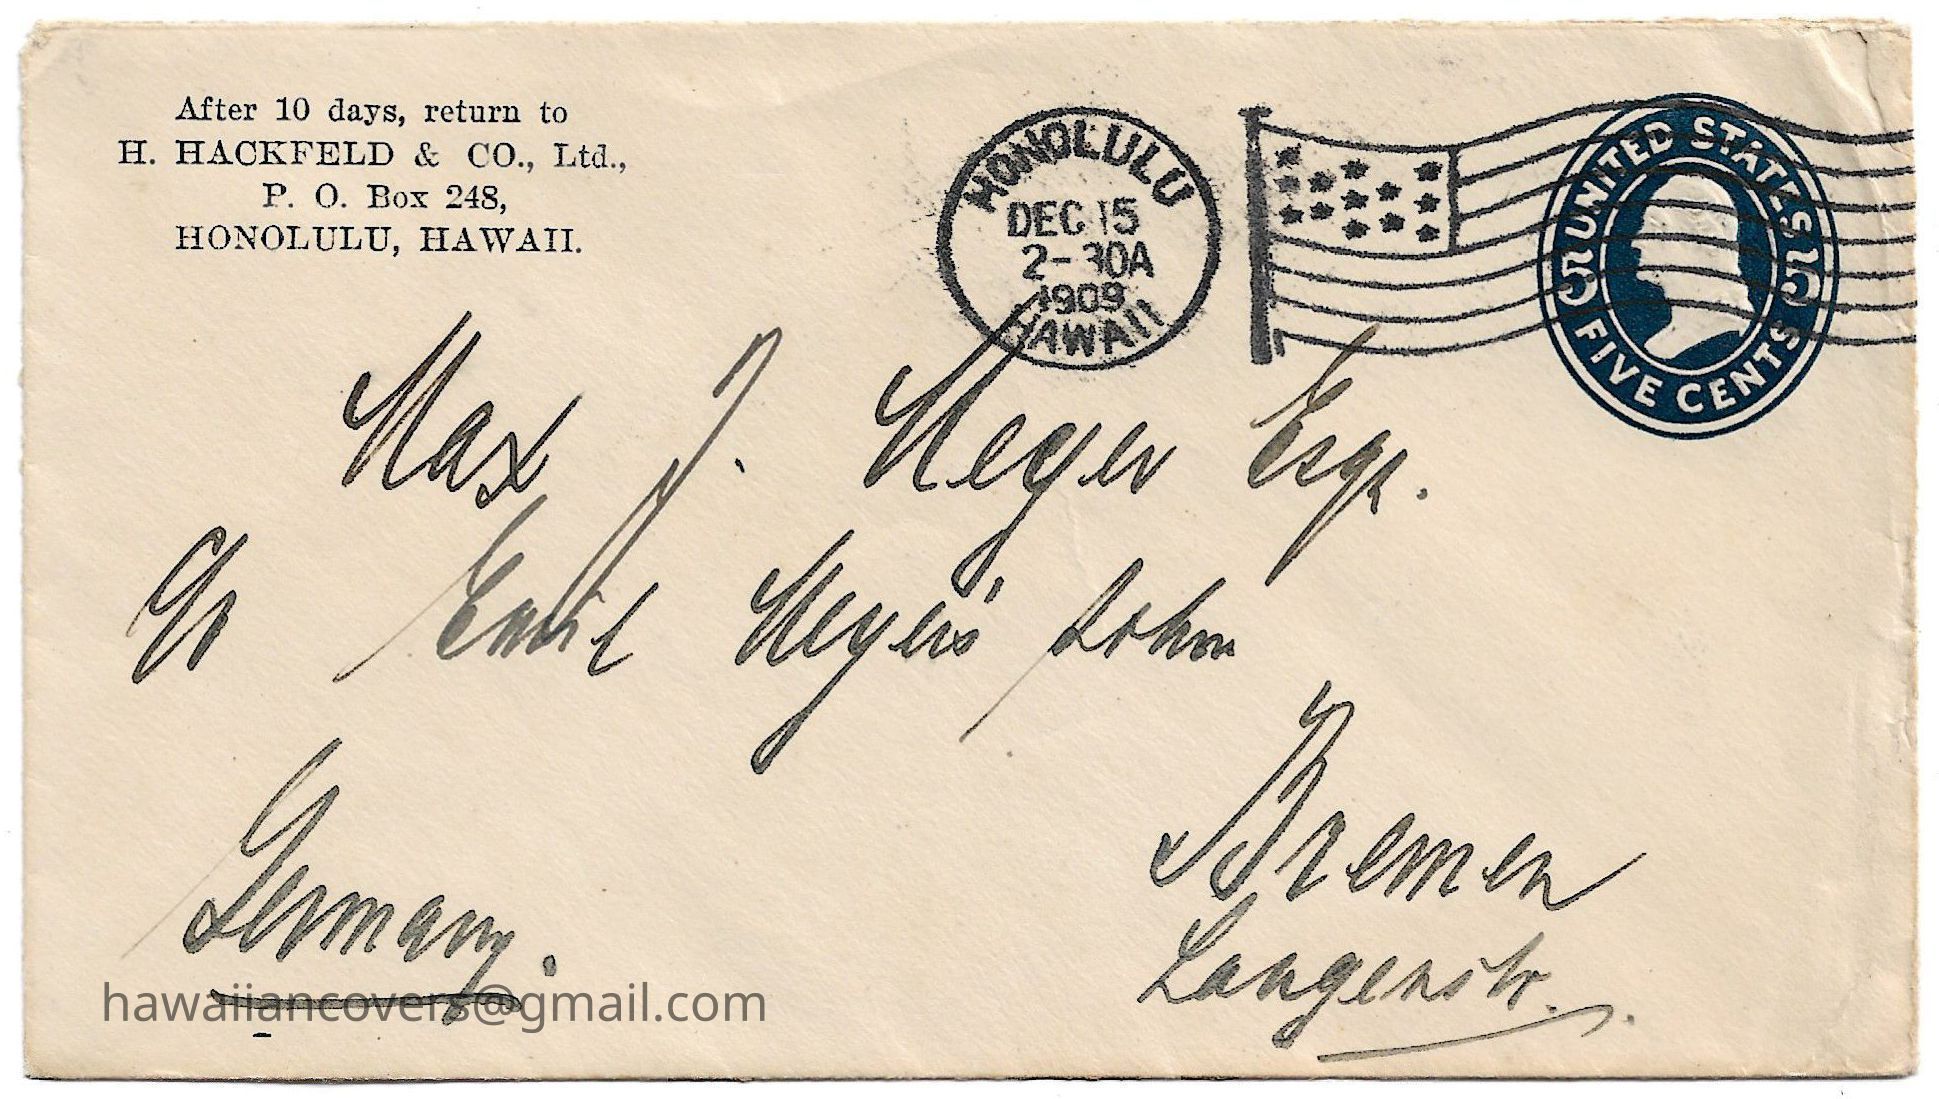 After 10 days, return to
H. HACKFELD & CO., Ltd.,
P. O. Box 248,
HONOLULU, HAWAII.
HONOLULU
DEC 15
2-30A
1909
HAWAII
UNITED STATES
5 5
FIVE CENTS
Max J. Meyer Esqr.
c/o Emil Meyer's Sohn
Bremen
Langenstr.
Germany.
hawaiiancovers@gmail.com